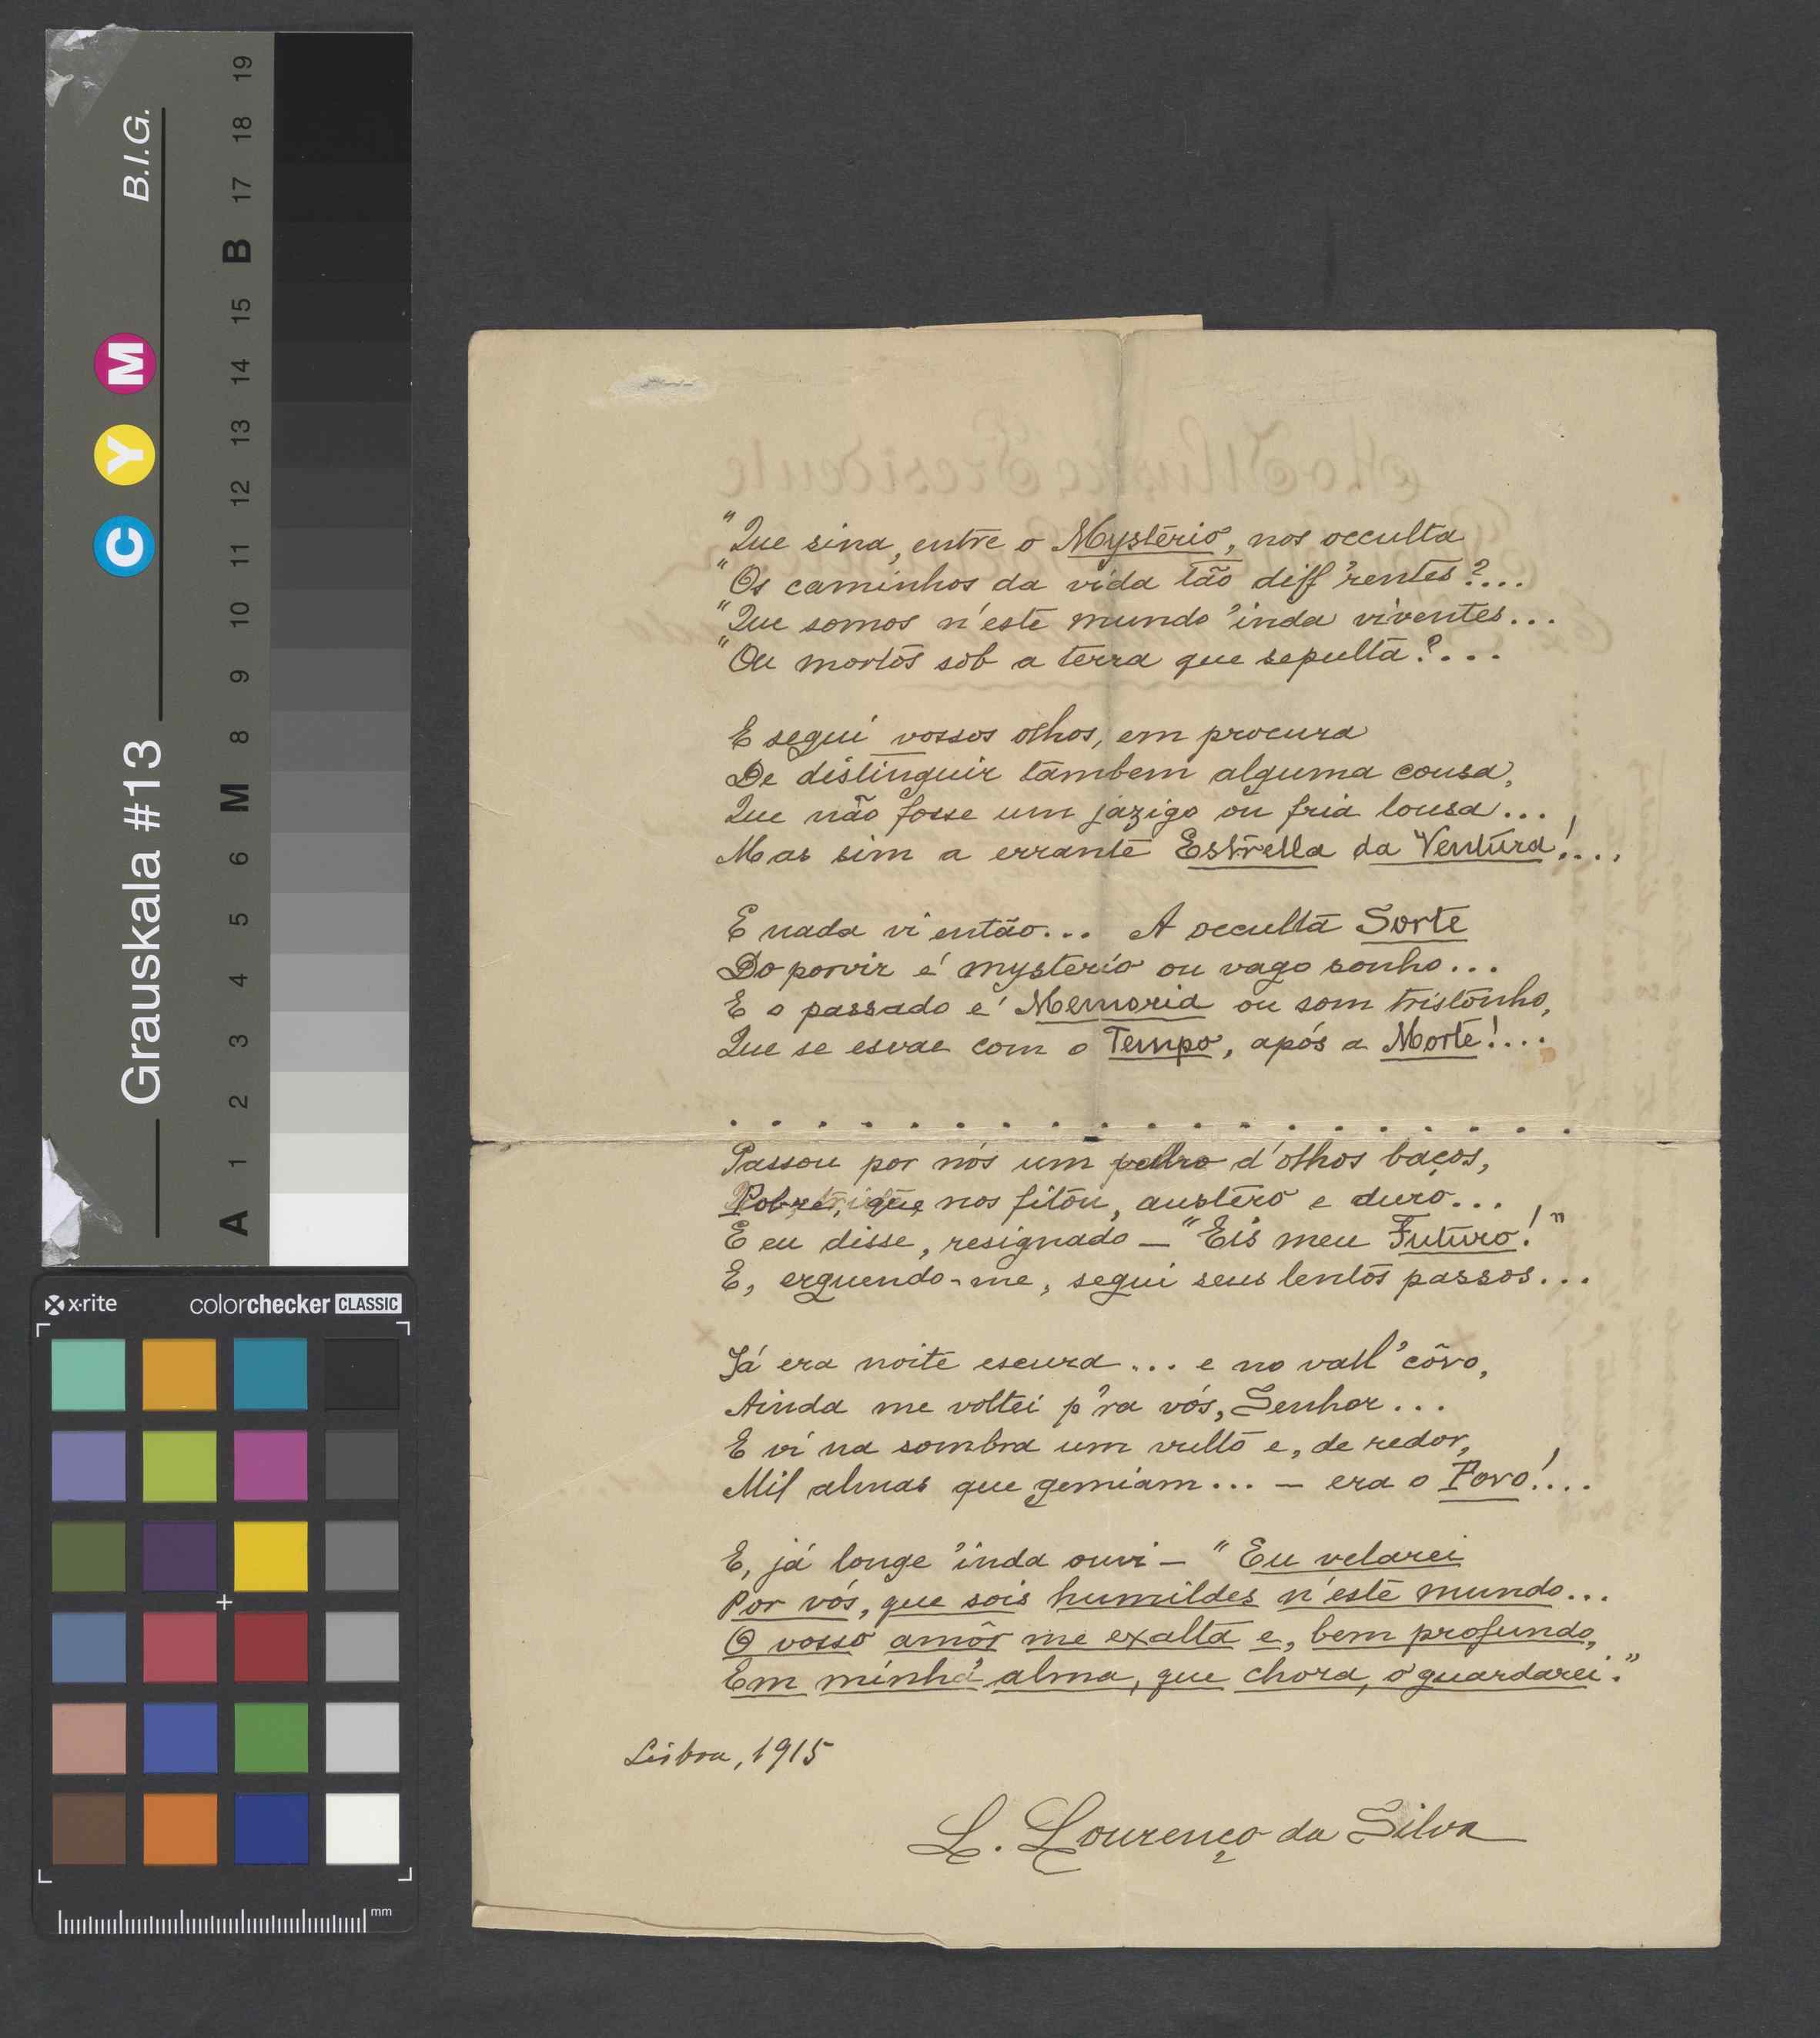 "Que sina, entre o Mystério, nos occulta
"Os caminhos da vida tão diff'rentes?...
"Que somos n'este mundo 'inda viventes...
"Ou mortos sob a terra que sepulta?...
E segui vossos olhos, em procura
De distinguir tambem alguma cousa,
Que não fosse um jazigo ou fria lousa...
Mas sim a errante Estrella da Ventura!...
E nada vi então... A occulta Sorte
Do porvir é mysterio ou vago sonho...
E o passado é Memoria ou som tristonho,
Que se esvae com o Tempo, após a Morte!...
. . . . . . . . . . . . . . . . . . . .
Passou por nós um d'olhos baços,
que nos fitou, austero e duro...
E eu disse, resignado — "Eis meu Futuro!"
E, erguendo-me, segui seus lentos passos...
Já era noite escura... e no vall' côvo,
Ainda me voltei p'ra vós, Senhor...
E vi na sombra um vulto e, de redor,
Mil almas que gemiam... — era o Povo!...
E, já longe 'inda ouvi — "Eu velarei
Por vós, que sois humildes n'este mundo...
O vosso amôr me exalta e, bem profundo,
Em minha alma, que chora, o guardarei."
Lisboa, 1915
L. Lourenço da Silva
Grauskala #13
C Y M
B.I.G.
A 1 2 3 4 5 6 M 8 9 10 11 12 13 14 15 B 17 18 19
x-rite
colorchecker CLASSIC
mm